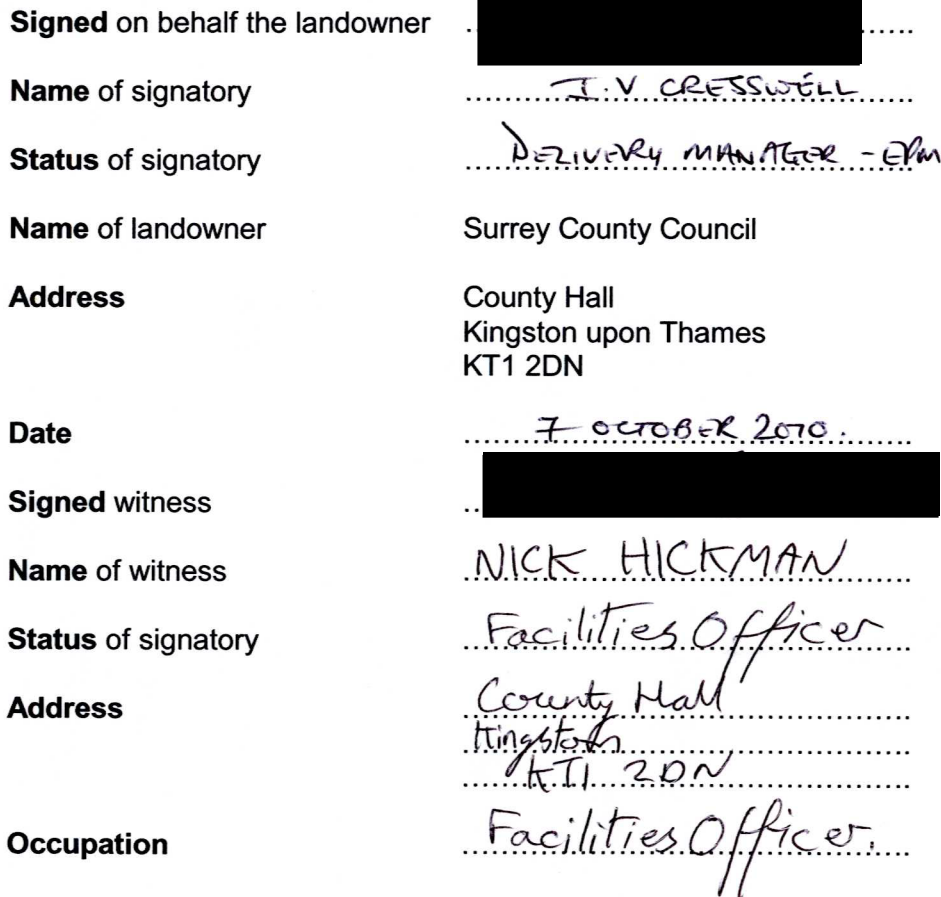 Signed on behalf the landowner
Name of signatory I.V CRESSWELL
Status of signatory DELIVERY MANAGER - EPM
Name of landowner Surrey County Council
Address County Hall
Kingston upon Thames
KT1 2DN
Date 7 OCTOBER 2010.
Signed witness
Name of witness NICK HICKMAN
Status of signatory Facilities Officer
Address County Hall
Kingston
KT1 2DN
Occupation Facilities Officer.